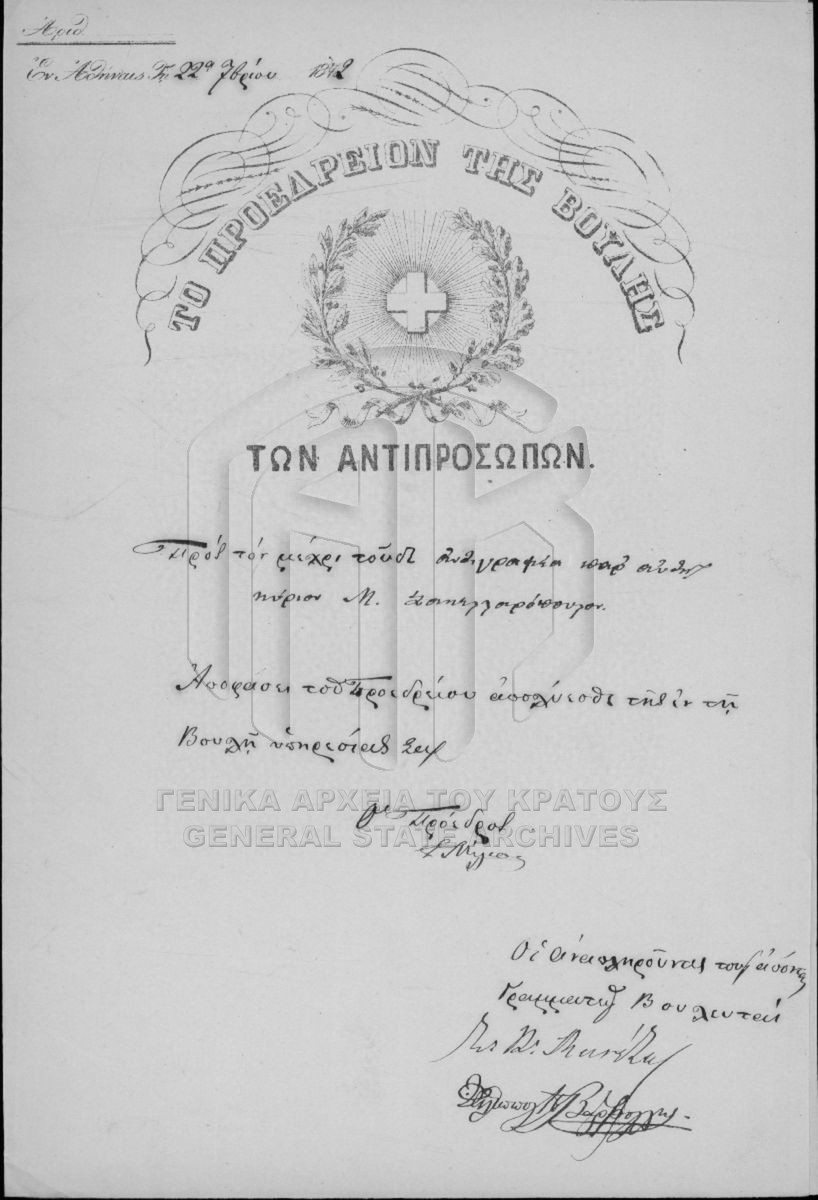 Ἀριθ.
Ἐν Ἀθήναις Τῇ 22ᾳ 7βρίου 18
ΤΟ ΠΡΟΕΔΡΕΙΟΝ ΤΗΣ ΒΟΥΛΗΣ
ΤΩΝ ΑΝΤΙΠΡΟΣΩΠΩΝ.
Πρὸς τὸν μέχρι τοῦδε ἀντιγραφέα παρ' αὐτῇ
κύριον Μ. Σακελλαρόπουλον.
Ἀποφάσει τοῦ Προεδρείου ἀπολύεσθε τῆς ἐν τῇ
Βουλῇ ὑπηρεσίας σας
ΓΕΝΙΚΑ ΑΡΧΕΙΑ ΤΟΥ ΚΡΑΤΟΥΣ
GENERAL STATE ARCHIVES
Ὁ Πρόεδρος
Σ Μίλιος
Οἱ ἀναπληροῦντες τοὺς ἀπόντας
Γραμματεῖς Βουλευταὶ